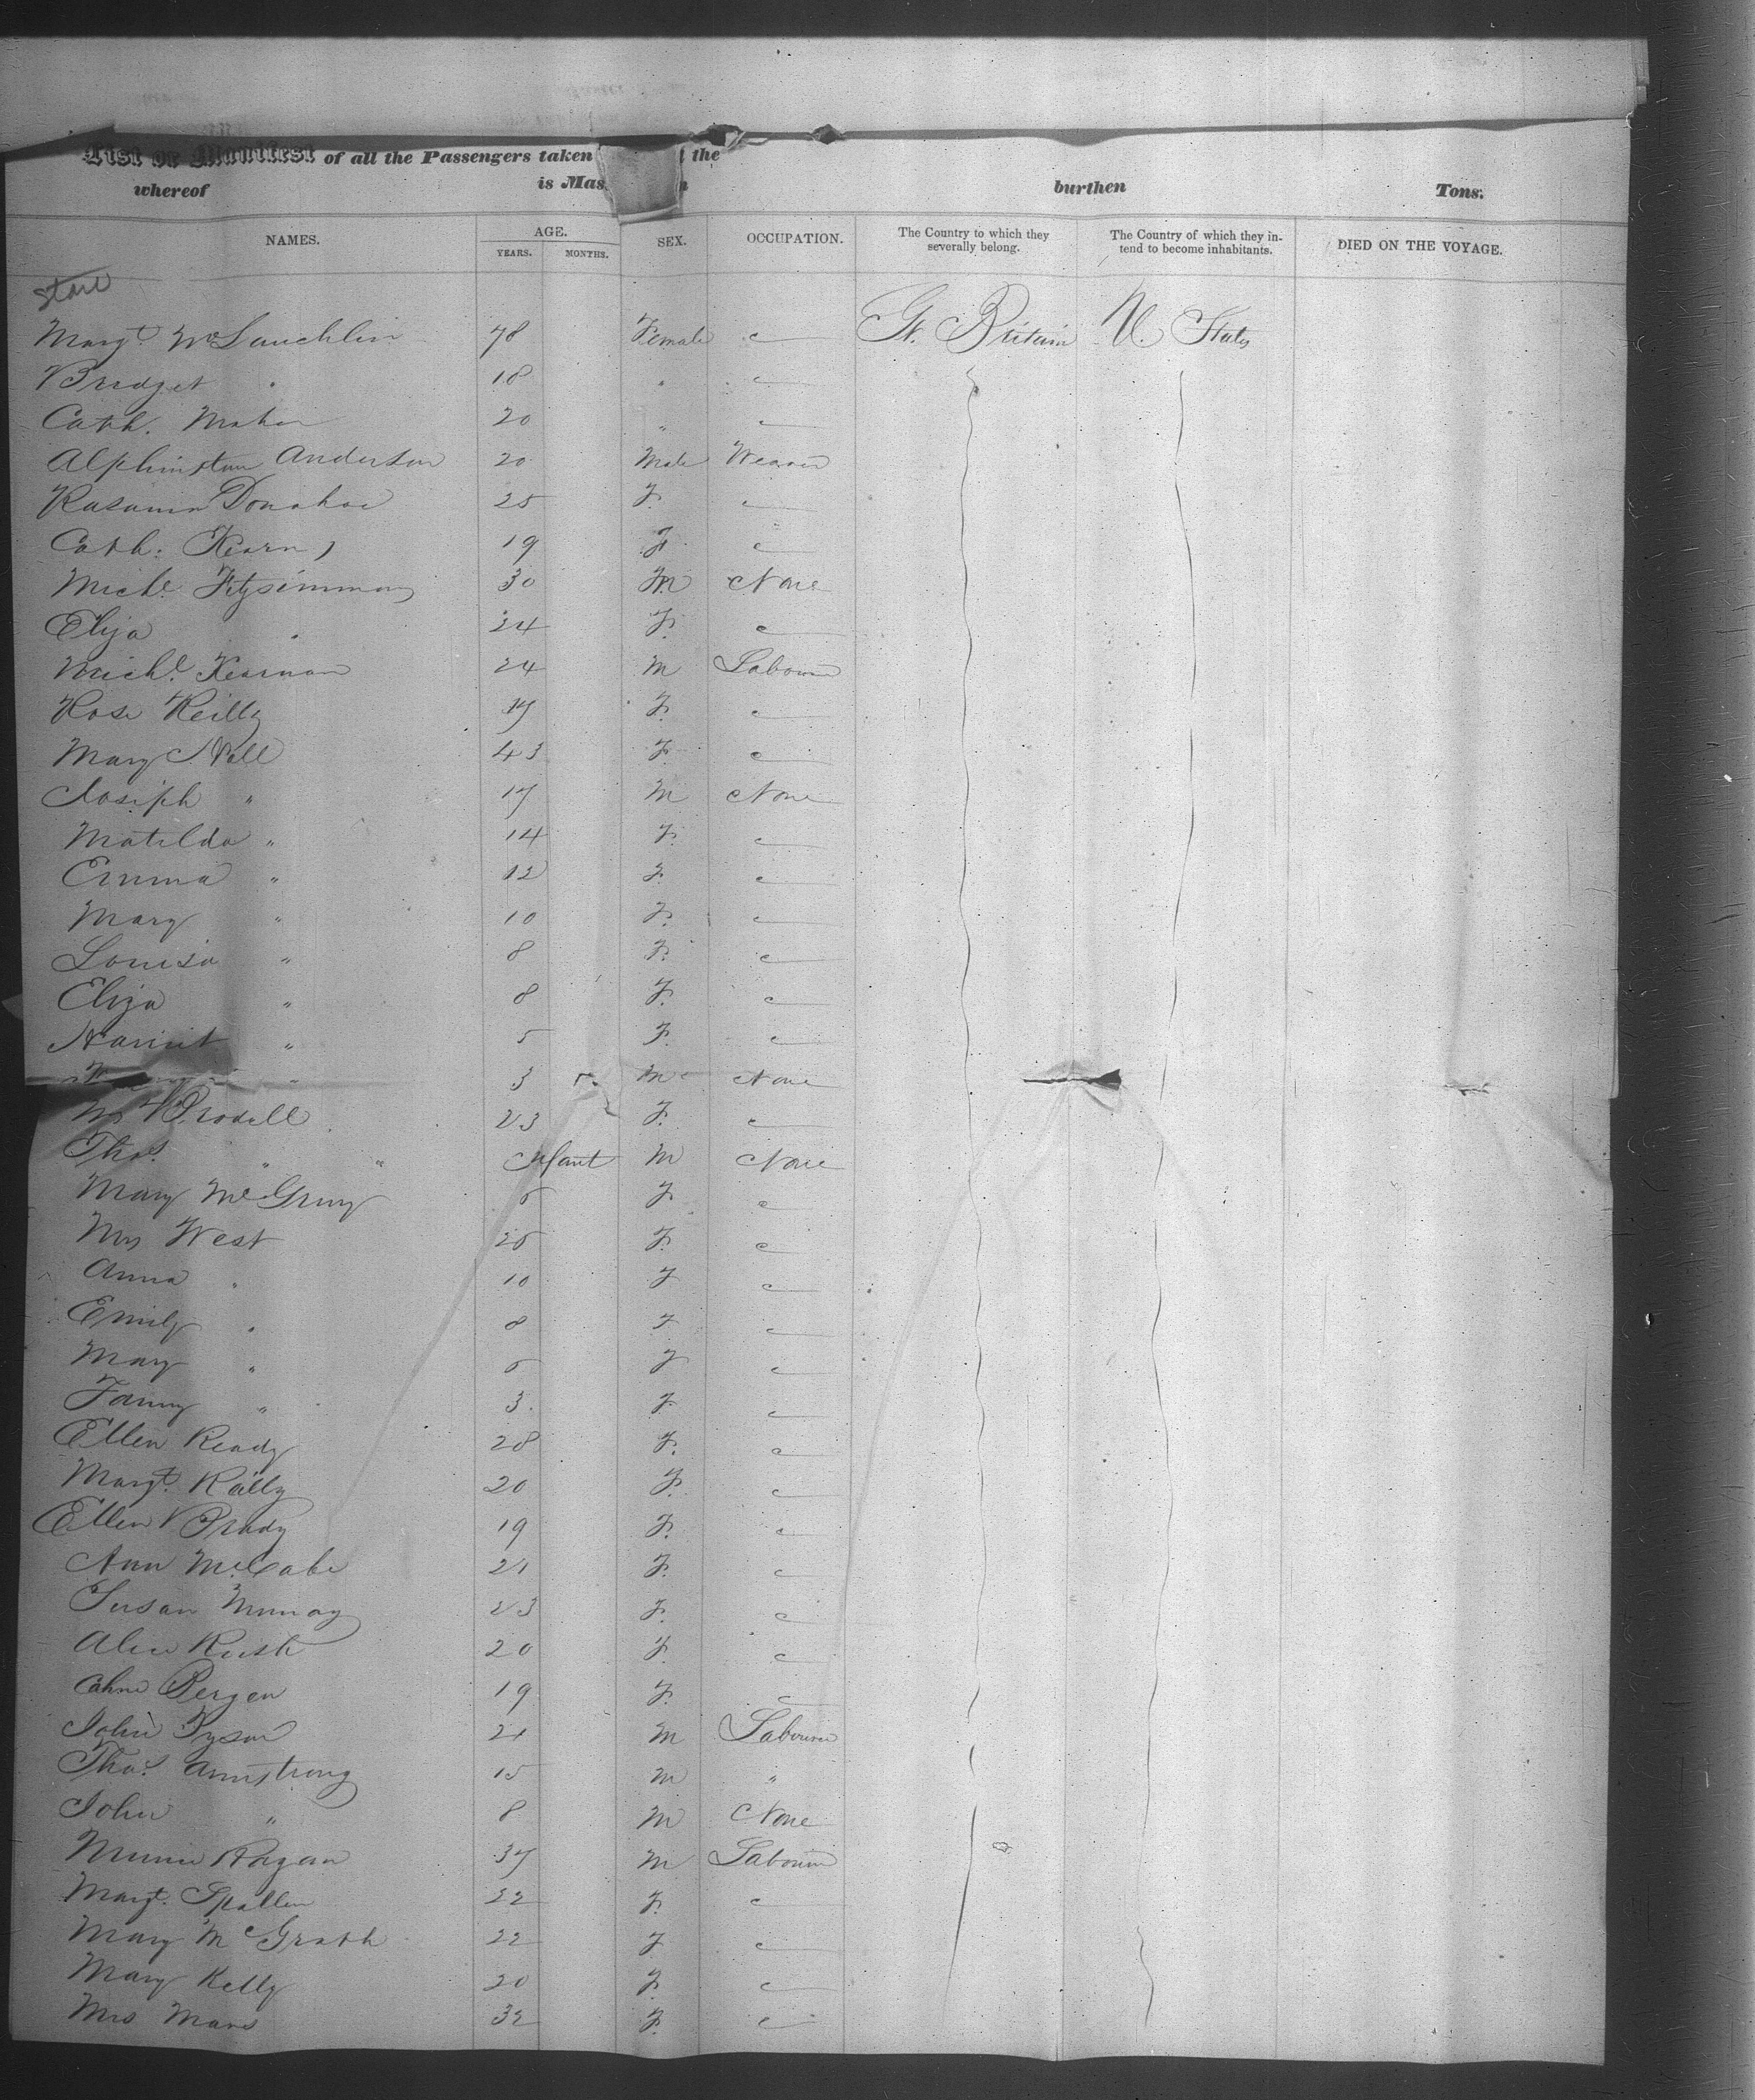 List or Manifest of all the Passengers taken the
whereof is Mas burthen Tons.
NAMES. AGE. YEARS. MONTHS. SEX. OCCUPATION. The Country to which they severally belong. The Country of which they intend to become inhabitants. DIED ON THE VOYAGE.
Start
Margt. McLauchlin 78 Female Gt. Britain U. States
Bridget " 18 "
Cath. Mahon 20 "
Alphinstan Anderson 20 Male Weaver
Donahoe 25 F.
Cath. 19 F
Michl. Fitzsimmons 30 M None
Eliza " 24 F.
Michl. Kearnan 24 M Labourer
Rose Reilly 17 F.
Mary Nall 43 F.
Joseph " 17 M None
Matilda " 14 F.
Emma " 12 F.
Mary " 10 F.
Louisa " 8 F.
Eliza " 8 F.
Harriet " 5 F.
" 3 M None
23 F.
Thos. " " Infant M None
Mary F
Mrs West F.
Anna " 10 F
Emily " 8 F
Mary " F
Fanny " 3. F
Ellen Ready 28 F.
Margt. 20 F.
Ellen Brady 19 F.
Ann McCabe 21 F.
Susan Murray 23 F.
Alice Rush 20 F.
Bergen 19 F.
John Tyson 21 M Labourer
Thos. Armstrong 15 M "
John " 8 M None
37 M Labourer
Margt. Spallen 22 F.
Mary McGrath 22 F
Mary Kelly 20 F.
Mrs 32 F.